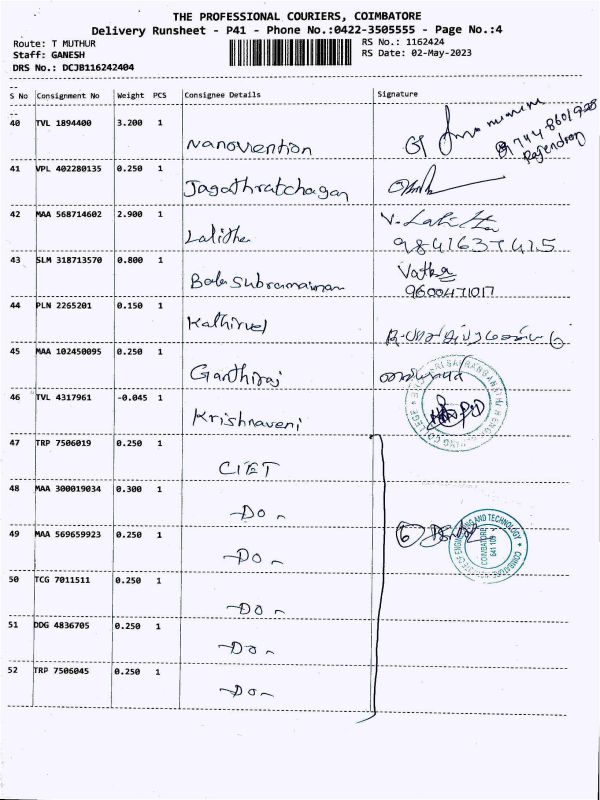 THE PROFESSIONAL COURIERS, COIMBATORE
Delivery Runsheet - P41 - Phone No.:0422-3505555 - Page No.:4
Route: T MUTHUR
RS No.: 1162424
Staff: GANESH
RS Date: 02-May-2023
DRS No.: DCJB116242404
S No Consignment No Weight PCS Consignee Details Signature
40 TVL 1894400 3.200 1
Nanovention
Rajendran
41 VPL 402280135 0.250 1
Jagathratchagan
42 MAA 568714602 2.900 1
Lalitha V. Lalitha
43 SLM 318713570 0.800 1
Balasubramanian
9600471017
44 PLN 2265201 0.150 1
Kathirvel
45 MAA 102450095 0.250 1
Ganthiraj
46 TVL 4317961 -0.045 1
Krishnaveni
47 TRP 7506019 0.250 1
CIET
48 MAA 300019034 0.300 1
-Do-
49 MAA 569659923 0.250 1
-Do-
6
COIMBATORE
641 109
50 TCG 7011511 0.250 1
-Do-
51 DDG 4836705 0.250 1
-Do-
52 TRP 7506045 0.250 1
-Do-